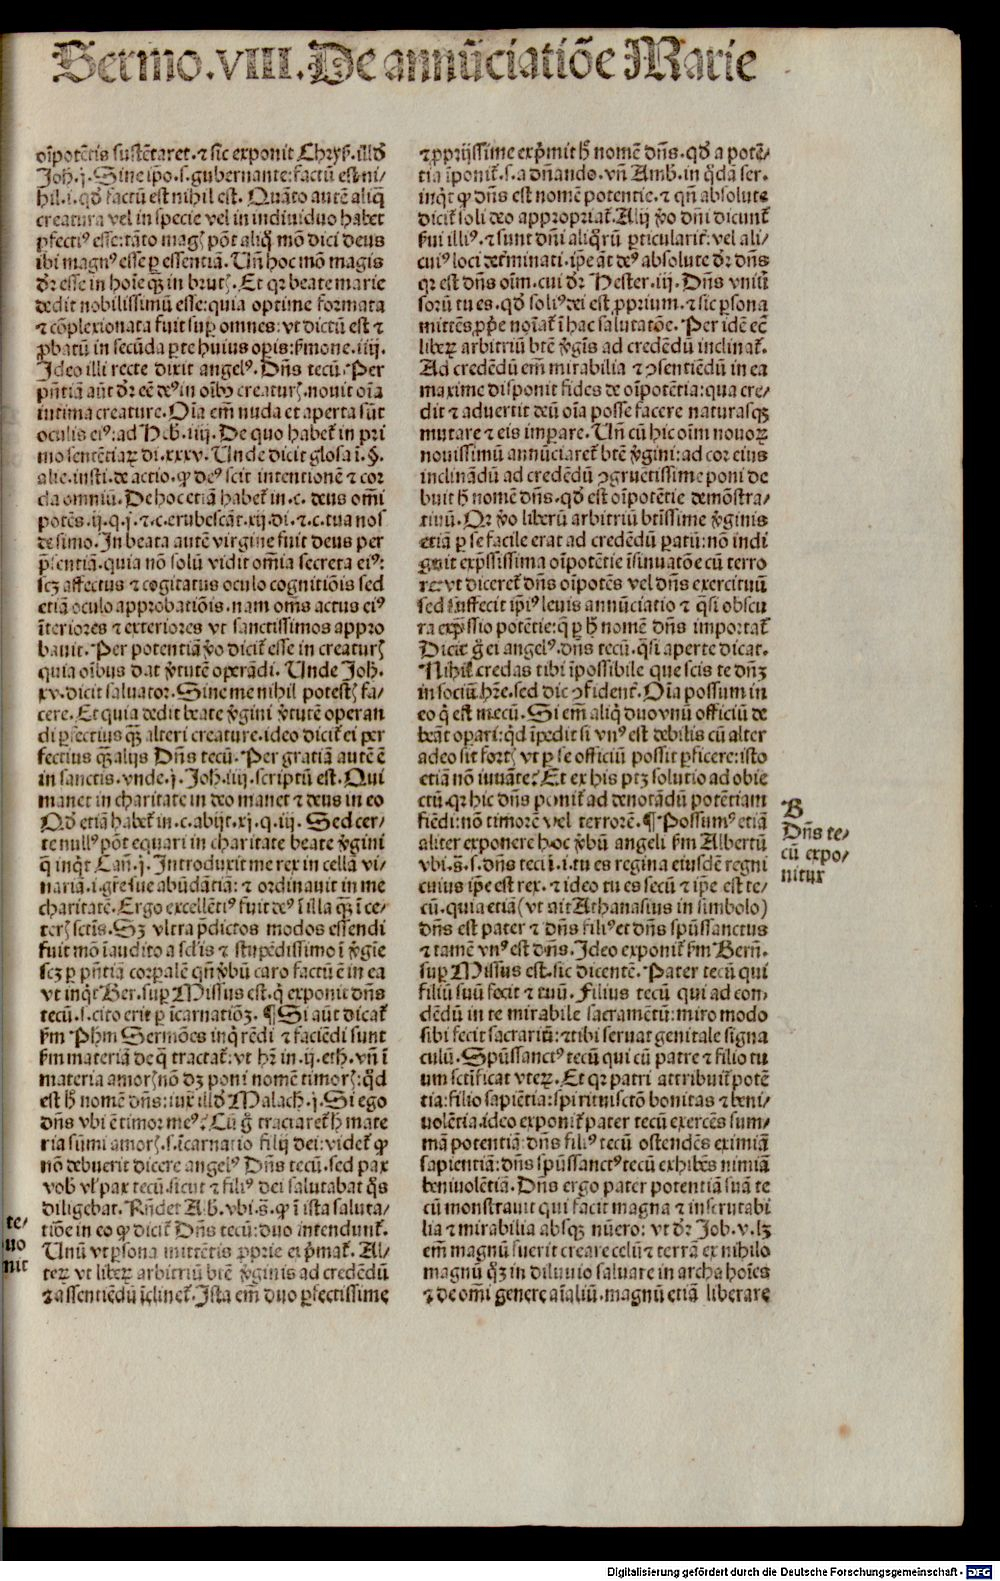 Sermo .VIII. De annūciatiōe Marie
oīpotētis sustētaret. ⁊ sic exponit Chrys. illđ
Joh. j. Sine ip̄o .s. gubernante: factū est ni-
hil .i. qđ factū est nihil est. Quāto autē aliq̄
creatura vel in specie vel in indiuiduo habet
ꝑfectiꝰ esse: tāto magꝭ pōt aliq̊ mō dici deus
ibi magꝰ esse ꝑ essentiā. Uñ hoc mō magis
dr̄ esse in hoīe qꝫ̄ in brutꝭ. Et qꝛ beate marie
dedit nobilissimū esse: quia optime formata
⁊ cōplexionata fuit suꝑ omnes: vt dictū est ⁊
ꝓbatū in secūda ꝑte huius oꝑis: ẜmone .iiij.
Ideo illi recte dixit angelꝰ. Dn̄s tecū. Per
pn̄tiā aūt dr̄ eē deꝰ in oībꝰ creaturꝭ. nouit oīa
intima creature. Oīa em̄ nuda et aperta sūt
oculis eiꝰ: ad Heb̄. iiij. De quo habet̄ in pri
mo sentētiaꝝ di .xxxv. Unde dicit glosa ī .§.
alie. insti. de actio. ꝙ deꝰ scit intentionē ⁊ cor
da omniū. De hoc etiā habet̄ in .c. deus om̄i
potēs .ij. q. j. ⁊ .c. erubescāt .xij. di. ⁊ .c. tua nos
de simo. In beata autē virgine fuit deus per
p̄sentiā. quia nō solū vidit om̄ia secreta eiꝰ:
scꝫ affectus ⁊ cogitatus oculo cognitiōis sed
etiā oculo approbatiōis. nam om̄s actus eiꝰ
īteriores ⁊ exteriores vt sanctissimos appro
bauit. Per potentiā ꝟo dicit̄ esse in creaturꝭ
quia oībus dat ꝟtutē operādi. Unde Joh.
xv. dicit saluator. Sine me nihil potestꝭ fa-
cere. Et quia dedit beate ꝟgini ꝟtutē operan
di ꝑfectius qꝫ̄ alteri creature. ideo dicit̄ ei per
fectius qꝫ̄ alijs Dn̄s tecū. Per gratiā autē ē
in sanctis. vnde .j. Joh. iiij. scriptū est. Qui
manet in charitate in deo manet ⁊ deus in eo
Qđ etiā habet̄ in .c. abijt. xj. q. iij. Sed cer-
te nullꝰ pōt equari in charitate beate ꝟgini
q̄ inqͥt Can̄. j. Introduxit me rex in cellā vi-
nariā .i. gr̄e sue abūdātiā: ⁊ ordinauit in me
charitatē. Ergo excellētiꝰ fuit deꝰ ī illa qꝫ̄ ī ce-
terꝭ sctīs. Sꝫ vltra p̄dictos modos essendi
fuit mō īaudito a sclīs ⁊ stupēdissimo ī ꝟgīe
scꝫ ꝑ pn̄tiā corꝑalē qn̄ ꝟbū caro factū ē in ea
vt inqͥt Ber. suꝑ Missus est. q̄ exponit dn̄s
tecū .s. cito erit ꝑ īcarnatiōꝫ. ¶ Si aūt dicat̄
ẜm Ph̄m Sermōes inqͥrēdi ⁊ faciēdi sunt
ẜm materiā de q̄ tractat̄: vt hr̄ in .ij. eth. vn̄ ī
materia amorꝭ nō dꝫ poni nomē timorꝭ: qđ
est ħ nomē dn̄s: iux̄ illđ Malach. j. Si ego
dn̄s vbi ē timor meꝰ? Cū g̊ tractaret̄ ħ mate
ria sūmi amorꝭ .s. īcarnatio filij dei: videt̄ ꝙ
nō debuerit dicere angelꝰ Dn̄s tecū. sed pax
vob̄ vl̄ pax tecū. sicut ⁊ filiꝰ dei salutabat q̊s
diligebat. Rn̄det Alb̄. vbi .s̄. ꝙ ī ista saluta-
tiōe in eo ꝙ dicit̄ Dn̄s tecū: duo intendunt̄.
Unū vt ꝑsona mittētis ꝓprie exp̄mat̄. Al-
teꝝ vt libeꝝ arbitriū btē ꝟginis ad credēdū
⁊ assentiēdū īclinet̄. Ista em̄ duo ꝑfectissime
te-
uo
nit
⁊ ꝓprijssime exp̄mit ħ nomē dn̄s. qđ a potē-
tia īponit̄ .s. a dn̄ando. vn̄ Amb. in qͥdā ser.
inqͥt ꝙ dn̄s est nomē potentie. ⁊ qn̄ absolute
dicit̄ soli deo appropriat̄. Alij ꝟo dn̄i dicunt̄
ẜui illiꝰ. ⁊ sunt dn̄i aliq̊rū ꝑticularit̄: vel ali-
cuiꝰ loci det̄minati. ip̄e āt deꝰ absolute dr̄ dn̄s
qꝛ est dn̄s oīm. cui dr̄ Hester .iij. Dn̄s vniū
sorū tu es. qđ soliꝰ dei est ꝓprium. ⁊ sic ꝑsona
mittēs ꝓp̄e noīat̄ ī hac salutatōe. Per idē eē
libeꝝ arbitriū btē ꝟgīs ad credēdū inclinat̄.
Ad credēdū em̄ mirabilia ⁊ ꝯsentiēdū in ea
maxime disponit fides de oīpotētia: qua cre-
dit ⁊ aduertit deū oīa posse facere naturasqꝫ
mutare ⁊ eis imꝑare. Uñ cū hic oīm nouoꝝ
nouissimū annūciaret̄ btē ꝟgini: ad cor eius
inclinādū ad credēdū ꝯgruētissime poni de
buit ħ nomē dn̄s. qđ est oīpotētie demōstra-
tiuū. Qꝛ ꝟo liberū arbitriū btīssime ꝟginis
etiā ꝑ se facile erat ad credēdū ꝑatū: nō indi
guit exp̄ssissima oīpotētie īsinuatōe cū terro
re: vt diceret̄ dn̄s oīpotēs vel dn̄s exercituū
sed suffecit ip̄iꝰ leuis annūciatio ⁊ qͣsi obscu
ra exp̄ssio potētie: q̄ ꝑ ħ nomē dn̄s importat̄
Dicit g̊ ei angelꝰ. dn̄s tecū. qͣsi aperte dicat.
Nihil credas tibi īpossibile que scis te dn̄ꝫ
in sociū hr̄e. sed dic ꝯfident̄. Oīa possum in
eo q̄ est mecū. Si em̄ aliq̄ duo vnū officiū de
beāt oꝑari: qͥd īpedit si vnꝰ est debilis cū alter
adeo sit fortꝭ vt ꝑ se officiū possit ꝑficere: isto
etiā nō iuuāte? Et ex his ptꝫ solutio ad obie
ctū. qꝛ hic dn̄s ponit̄ ad denotādū potētiam
fiēdi: nō timorē vel terrorē. ¶ Possumꝰ etiā
aliter exponere hoc ꝟbū angeli ẜm Albertū
vbi .s̄. s. dn̄s tecū .i. tu es regina eiusdē regni
cuius ip̄e est rex. ⁊ ideo tu es secū ⁊ ip̄e est te-
cū. quia etiā (vt ait Athanasius in simbolo)
dn̄s est pater ⁊ dn̄s filiꝰ et dn̄s spūssanctus
⁊ tamē vnꝰ est dn̄s. Ideo exponit̄ ẜm Bern̄.
suꝑ Missus est. sic dicentē. Pater tecū qui
filiū suū fecit ⁊ tuū. Filius tecū qui ad con-
dēdū in te mirabile sacramētū: miro modo
sibi fecit sacrariū: ⁊ tibi seruat genitale signa
culū. Spūssanctꝰ tecū qui cū patre ⁊ filio tu
um sctīficat vteꝝ. Et qꝛ patri attribuit̄ potē
tia: filio sapiētia: spirituisctō bonitas ⁊ beni-
uolētia. ideo exponit̄ pater tecū exercēs sum-
mā potentiā: dn̄s filiꝰ tecū ostendēs eximiā
sapientiā: dn̄s spūssanctꝰ tecū exhibēs nimiā
beniuolētiā. Dn̄s ergo pater potentiā suā te
cū monstrauit qui facit magna ⁊ inscrutabi
lia ⁊ mirabilia absqꝫ nūero: vt dr̄ Job. v. lꝫ
em̄ magnū fuerit creare celū ⁊ terrā ex nihilo
magnū qͦꝫ in diluuio saluare in archa hoīes
⁊ de om̄i genere aīaliū. magnū etiā liberare
B
Dn̄s te-
cū expo-
nitur
Digitalisierung gefördert durch die Deutsche Forschungsgemeinschaft - DFG